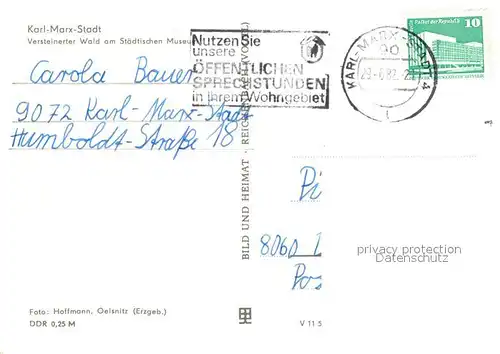 Karl-Marx-Stadt
Versteinerter Wald am Städtischen Museum
Nutzen Sie
unsere
ÖFFENTLICHEN
SPRECHSTUNDEN
in ihrem Wohngebiet
KARL-MARX-STADT 4
90
Palast der Republik
10
Carola Bauer
9072 Karl-Marx-Stadt
Humboldt-Straße 18
BILD UND HEIMAT · REICHENBACH (VOGTL)
Pi
8060
Pos
privacy protection
Datenschutz
Foto: Hoffmann, Oelsnitz (Erzgeb.)
DDR 0,25 M
V 11 5